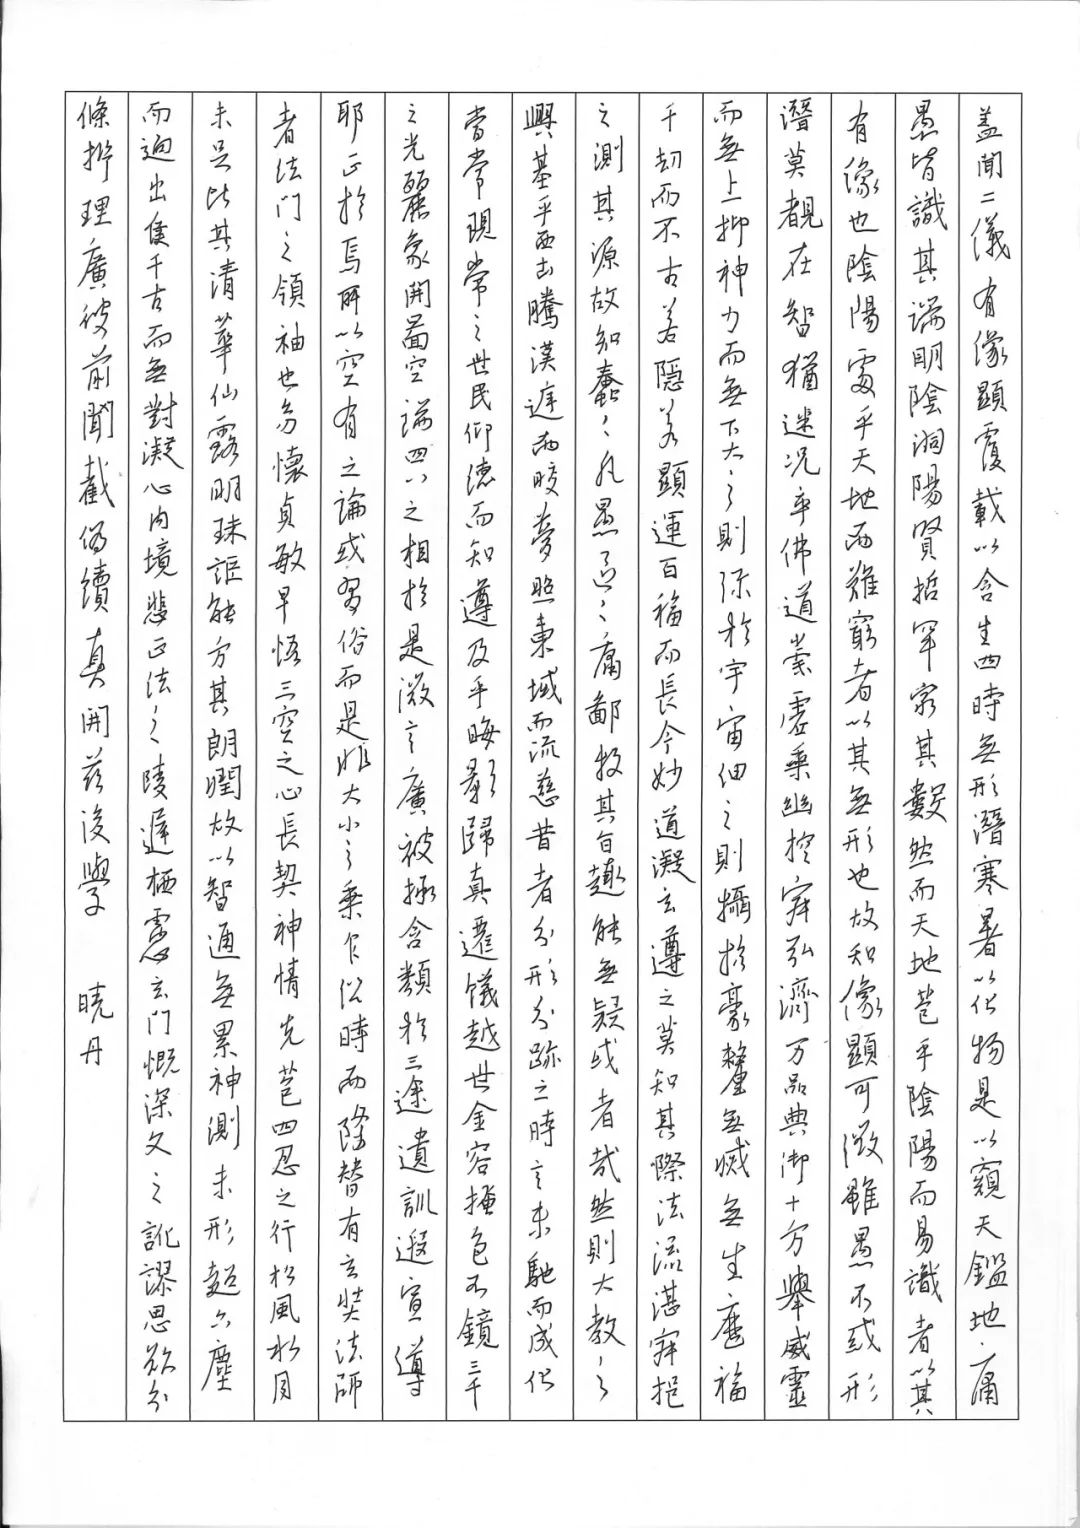 蓋聞二儀有像顯覆載以含生四時無形潛寒暑以化物是以窺天鑑地庸
愚皆識其端明陰洞陽賢哲罕窮其數然而天地苞乎陰陽而易識者以其
有像也陰陽處乎天地而難窮者以其無形也故知像顯可徵雖愚不惑形
潛莫覩在智猶迷況乎佛道崇虛乘幽控寂弘濟万品典御十方舉威靈
而無上抑神力而無下大之則弥於宇宙細之則攝於豪釐無滅無生歷
千劫而不古若隱若顯運百福而長今妙道凝玄遵之莫知其際法流湛寂挹
之測其源故知蠢〻凡愚區〻庸鄙投其旨趣能無疑或者哉然則大教之
興基乎西土騰漢遅而皎夢照東域而流慈昔者分形分跡之時言未馳而成化
當常現常之世民仰德而知遵及乎晦影歸真遷儀越世金容掩色不鏡三千
之光麗象開圖空端四八之相於是微言廣被拯含類於三途遺訓遐宣導
耶正於焉所以空有之論或習俗而是非大小之乘乍㳂時而隆替有玄奘法師
者法門之領袖也勿懷貞敏早悟三空之心長契神情先苞四忍之行松風水月
未足比其清華仙露明珠詎能方其朗潤故以智通無累神測未形超六塵
而迥出隻千古而無對凝心內境悲正法之陵遲栖慮玄門慨深文之訛謬思欲分
條析理廣彼前聞截偽續真開茲後學 曉丹